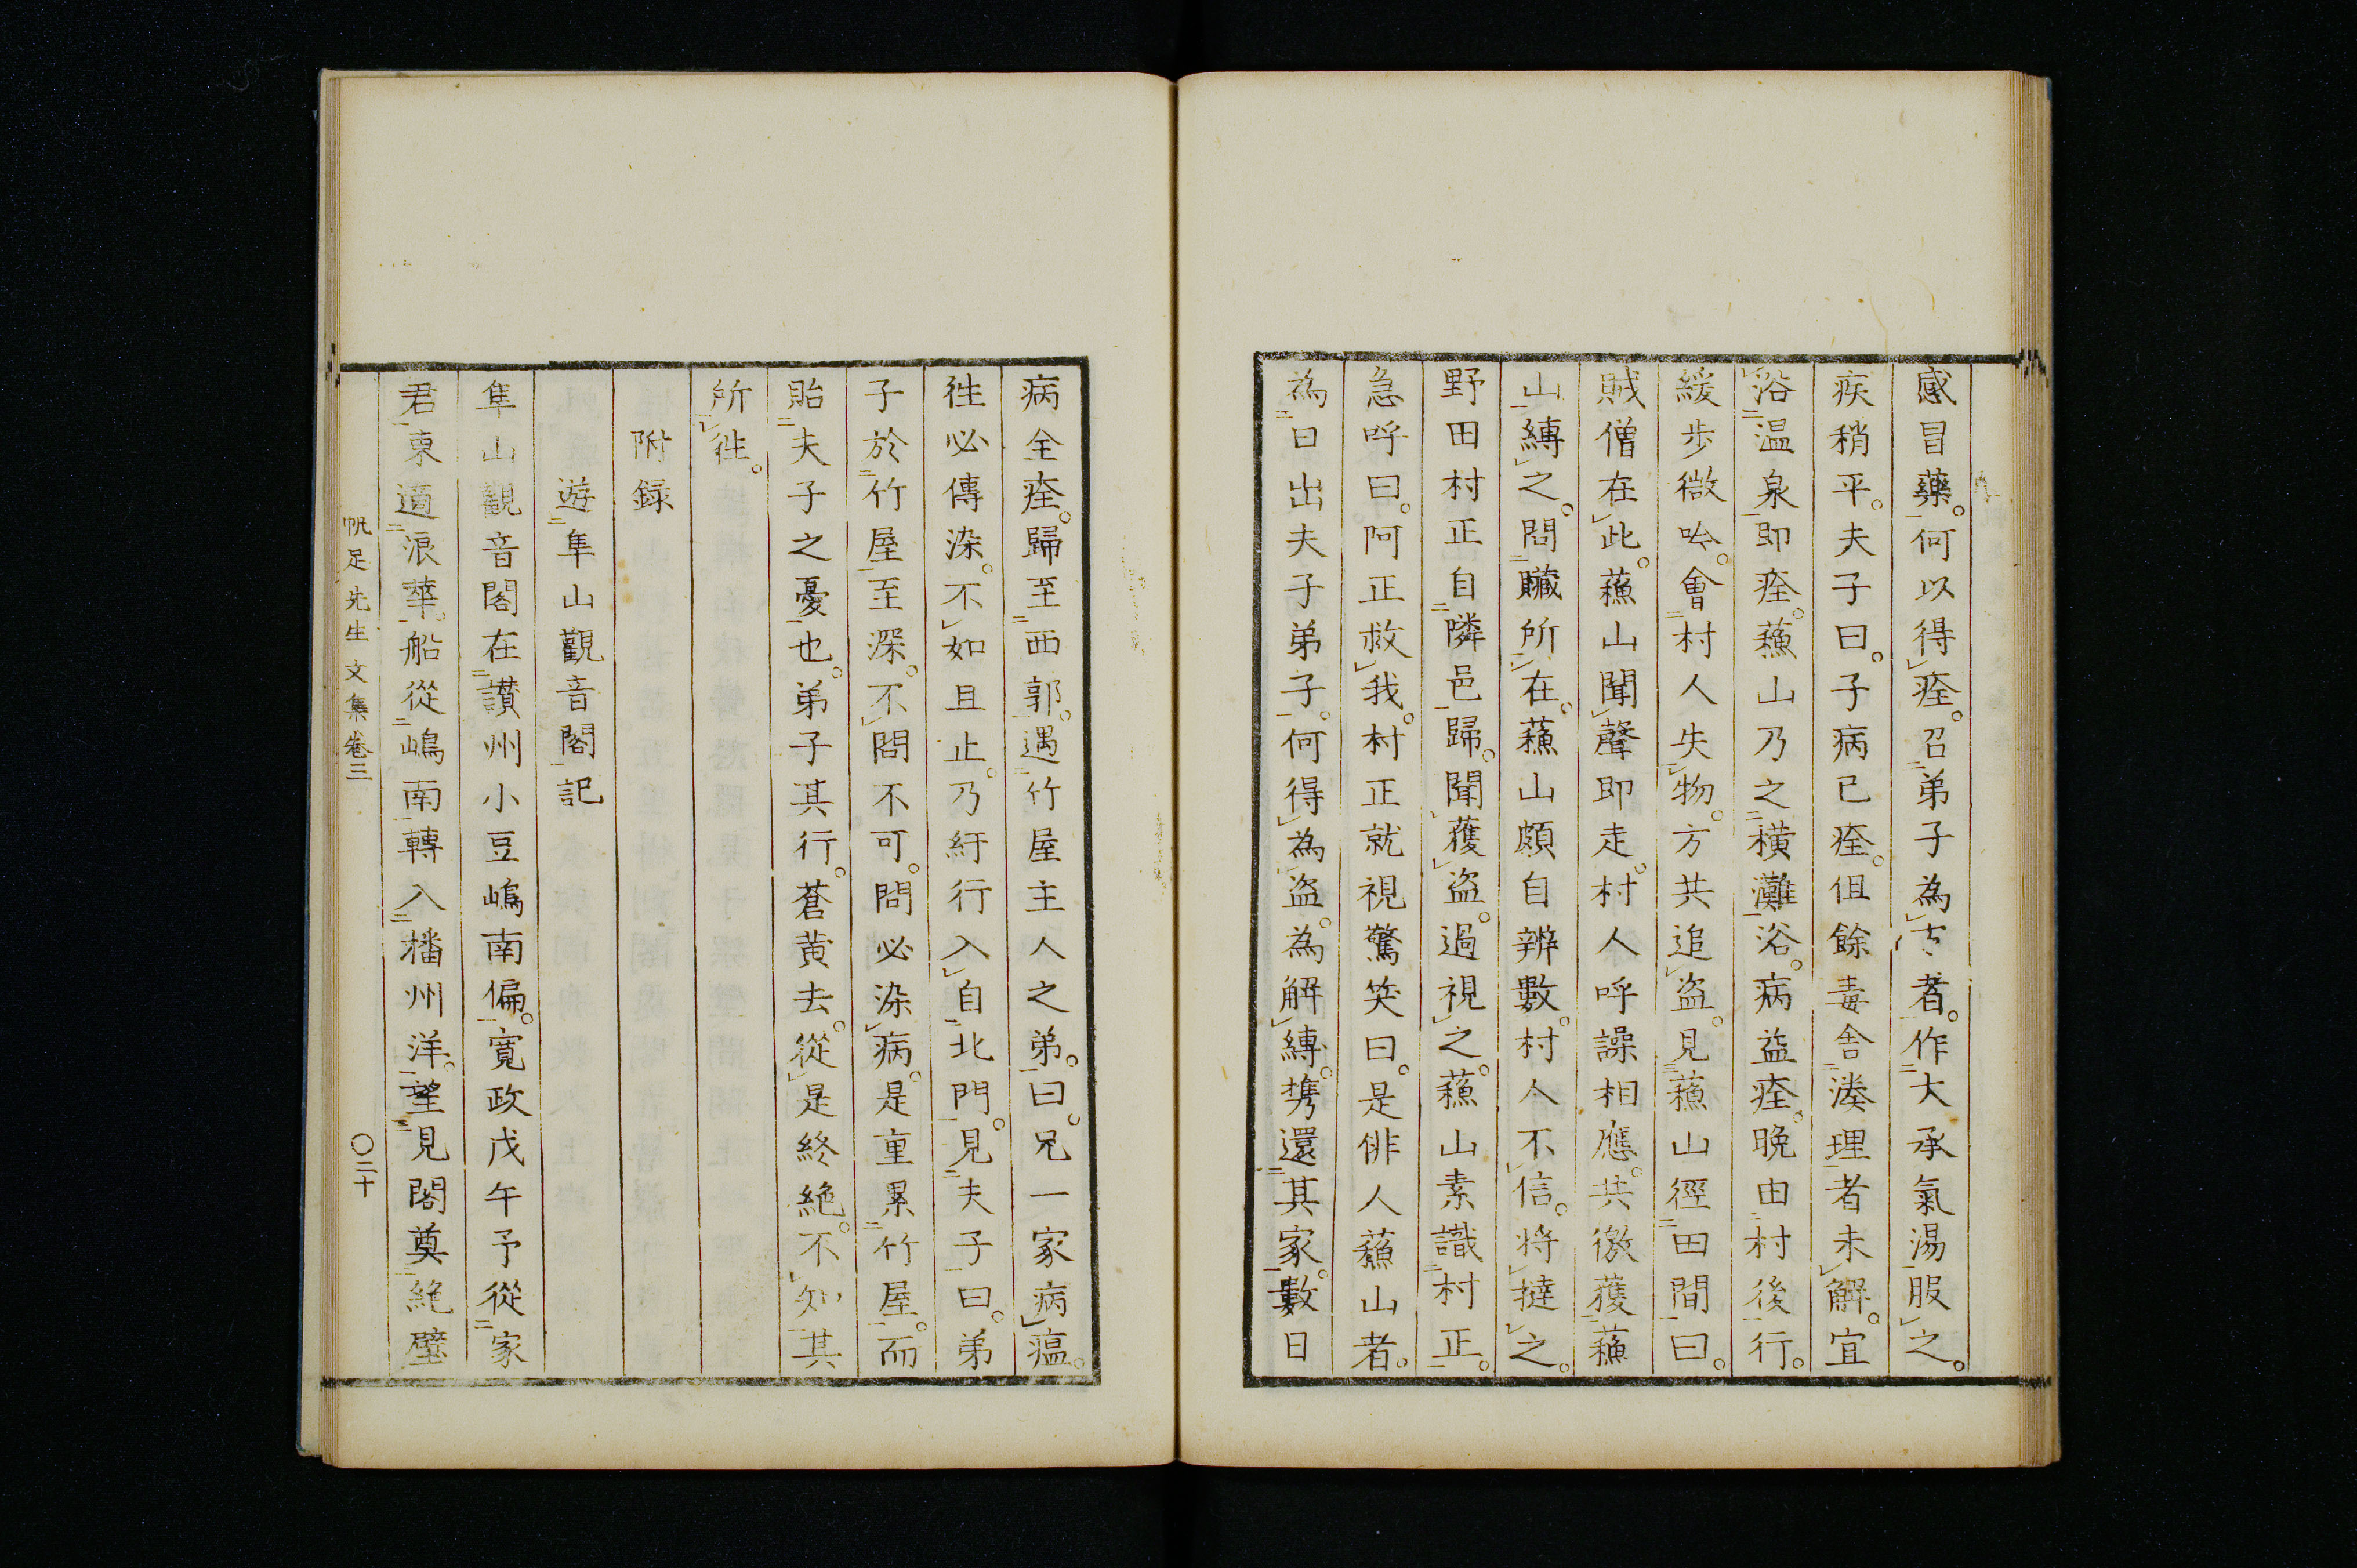 感冒藥。何以得痊。召弟子為者。作大承氣湯服之。
疾稍平。夫子曰。子病已痊。但餘毒舎湊理者未解。宜
浴温泉即痊。蘓山乃之横灘浴。病益痊。晩由村後行。
緩歩微吟。會村人失物。方共追盗。見蘓山徑田間曰。
賊僧在此。蘓山聞聲即走。村人呼譟相應。共徼獲蘓
山縛之。問贓所在。蘓山頗自辨數。村人不信。将撻之。
野田村正自隣邑歸。聞獲盗。過視之。蘓山素識村正。
急呼曰。阿正救我。村正就視驚笑曰。是俳人蘓山者。
為曰出夫子弟子。何得為盗。為解縛。携還其家。數日
病全痊。歸至西郭。遇竹屋主人之弟。曰。兄一家病瘟。
徃必傳染。不如且止。乃紆行入自北門。見夫子曰。弟
子於竹屋至深。不問不可。問必染病。是重累竹屋。而
貽夫子之憂也。弟子其行。蒼黄去。從是終絶。不知其
所徃。
附録
遊隼山觀音閣記
隼山觀音閣在讃州小豆嶋南偏。寛政戊午予從家
君東適浪華。船從嶋南轉入播州洋。望見閣奠絶壁
帆足先生文集卷三
〇二十